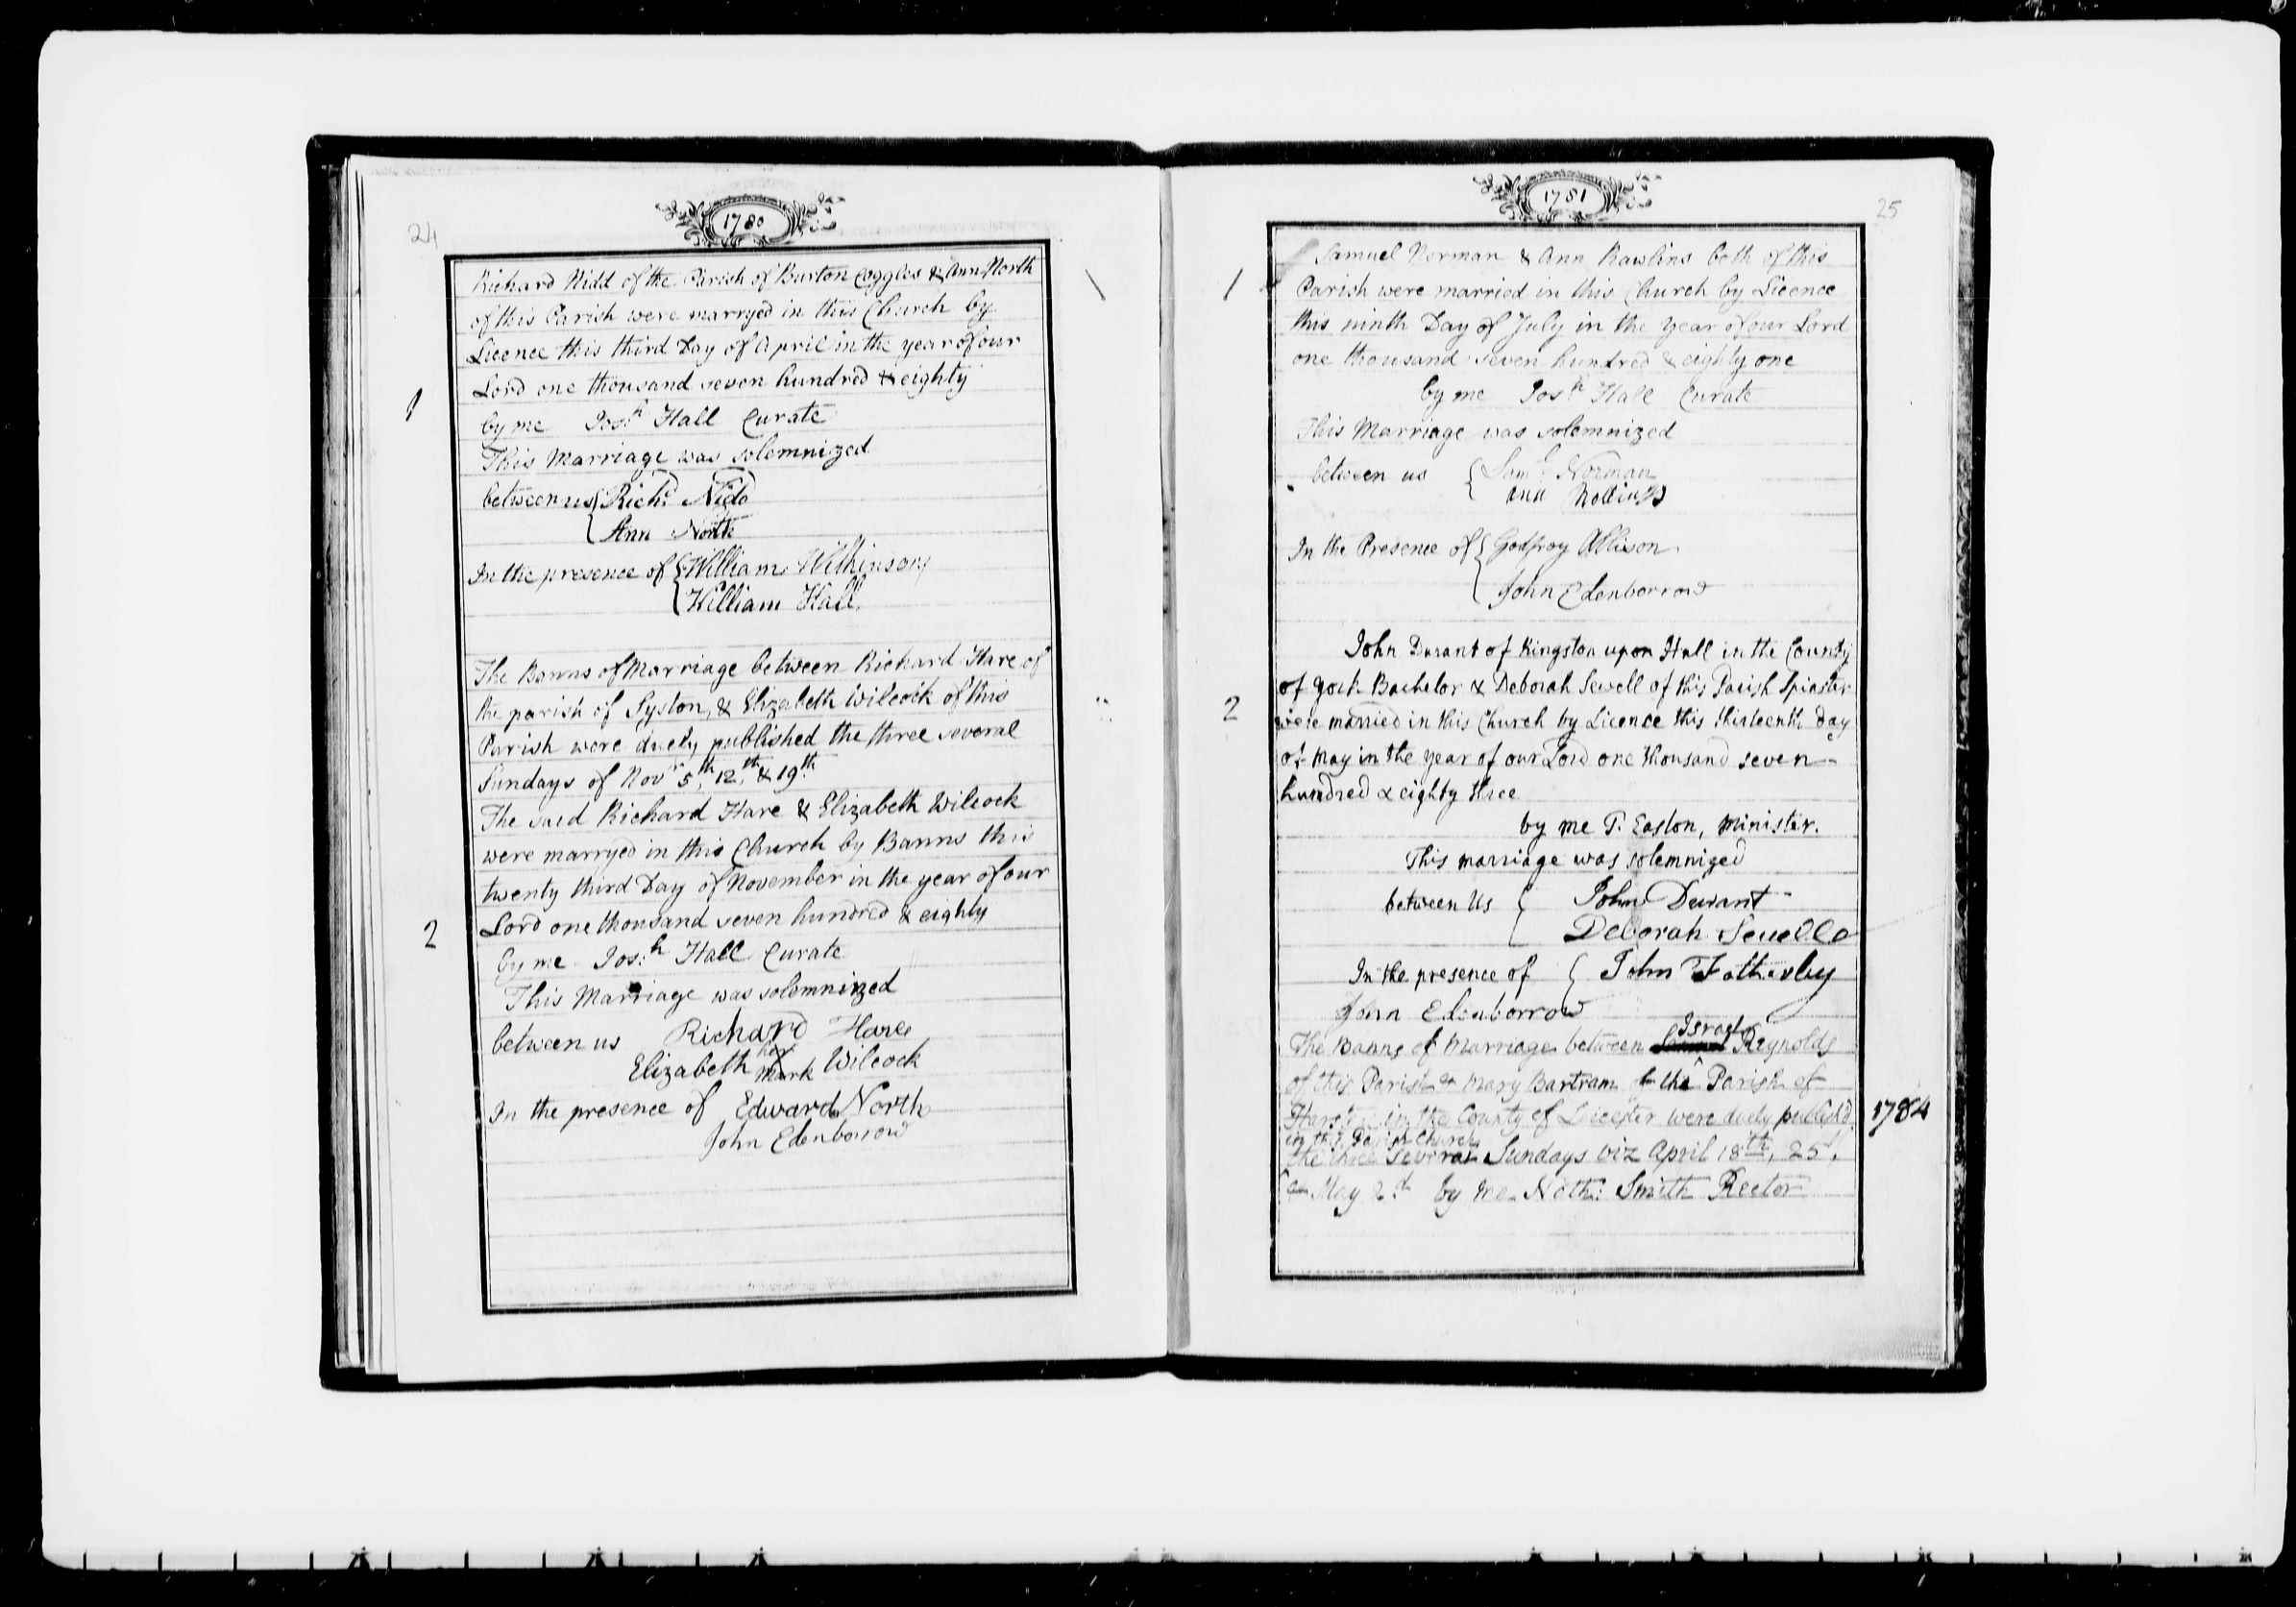 24
1780
Richard Nidd of the Parish of Burton Coggles & Ann North
of this Parish were marryed in this Church by
Licence this third Day of April in the year of our
Lord one thousand seven hundred & eighty
1
by me Jos:h Hall Curate
This Marriage was solemnized
between us { Rich:d Nidd
Ann North
In the presence of { William Wilkinson
William Hall
The Banns of Marriage between Richard Hare of
the parish of Syston, & Elizabeth Wilcock of this
Parish were duely published the three several
Sundays of Nov.r 5th, 12.th & 19th
The said Richard Hare & Elizabeth Wilcock
were marryed in this Church by Banns this
twenty third Day of November in the year of our
Lord one thousand seven hundred & eighty
2
by me Jos:h Hall Curate
This Marriage was solemnized
between us Richard Hare
Elizabeth her X Mark Wilcock
In the presence of Edward North
John Edenborrow
1781
25
1
Samuel Norman & Ann Rawlins both of this
Parish were married in this Church by Licence
this ninth Day of July in the Year of our Lord
one thousand seven hundred & eighty one
by me Jos:h Hall Curate
This Marriage was solemnized
between us { Sam:l Norman
ann Rollings
In the Presence of { Godfroy Allison
John Edenborrow
John Durant of Kingston upon Hull in the County
of York Bachelor & Deborah Sewell of this Parish Spinster
2
were married in this Church by Licence this thirteenth Day
of May in the Year of our Lord one thousand seven
hundred & eighty three
by me T. Easton, Minister.
This marriage was solemnized
between Us { John Durant
Deborah Sewell
In the presence of { John Fotherby
John Edenborrow
The Banns of Marriage between Israel Reynolds
of this Parish & Mary Bartram of the Parish of
in the County of Leicester were duely publish'd
1784
in this Parish Church
the three several Sundays viz April 18th, 25th,
& May 2d by me Nath: Smith Rector